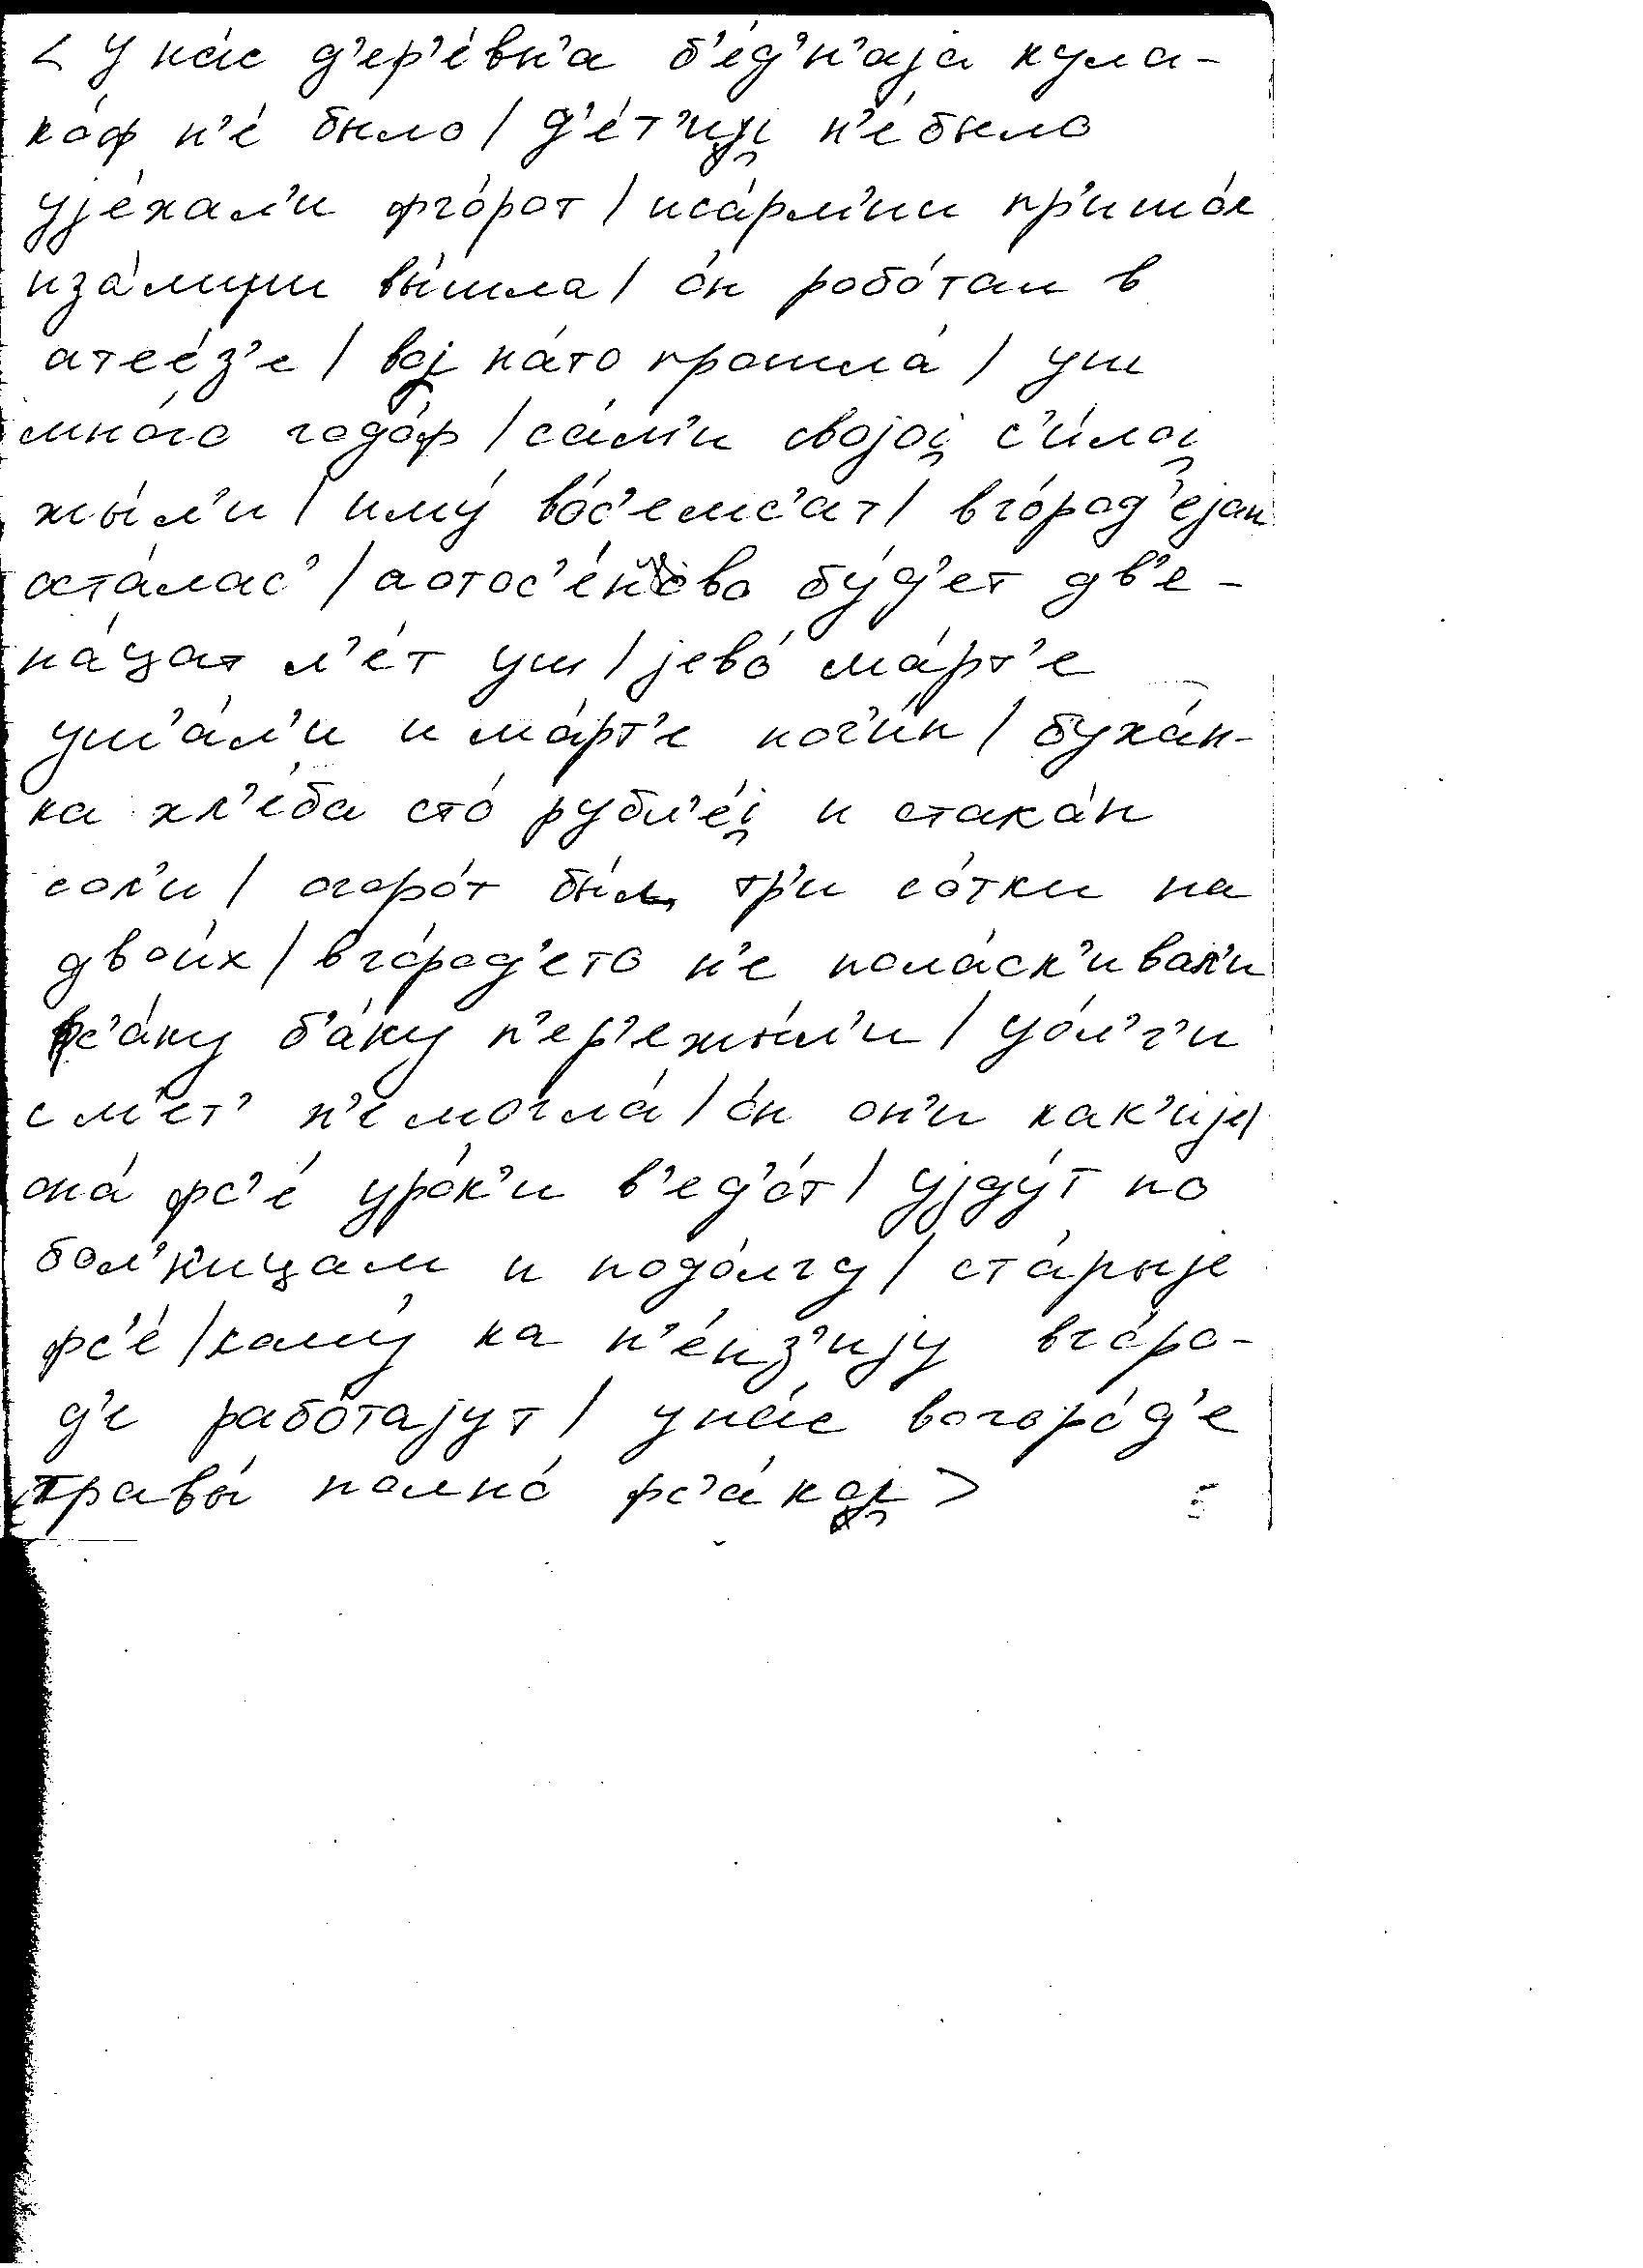 < У на́с д'ер'е́вн'а б'е́д'н'аjа кула-
ко́ф н'е́ было / д'е́т'иi̯ н'е́было
уjе́хал'и фго́рот / иса́рм'ии пр'ишо́л
иза́муш вы́шла / о́н робо́тал в
атее́з'е / воj на́то прошла́ / уш
мно́го годо́ф / са́м'и своjоi̯ с'и́лоi̯
жы́л'и / иму́ во́с'емс'ат / вго́род'еjан
оста́лас' / аотос'е́н'ово бу́д'ет дв'е-
на́цат л'е́т уш / jево́ ма́рт'е
уш'а́л'и и ма́рт'е пог'и́п / буха́н-
ка хл'е́ба сто́ рубл'е́i̯ и стака́н
сол'и / огоро́т бы́л тр'и со́тки на
двои́х / вго́род'ето н'е пола́ск'ивал'и
фс'а́ку б'а́ку п'ер'ежы́л'и / уо́л'г'и
см'ет' н'емогла́ / о́н он'и как'иjе /
она́ фс'е́ уро́к'и в'ед'о́т / уjду́т по
бол'н'ицам и подо́лгу / ста́рыjе
фс'е́ / кому́ на п'е́нз'иjу вго́ро-
д'е рабо́таjут / уна́с вогоро́д'е
травы́ полно́ фс'а́коi̯ >